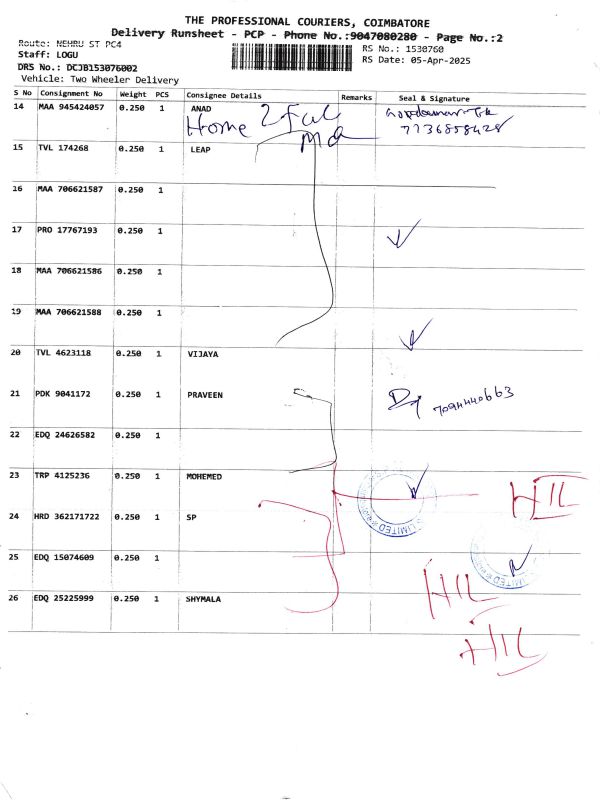 THE PROFESSIONAL COURIERS, COIMBATORE
Delivery Runsheet - PCP - Phone No.:9047080280 - Page No.:2
Route: NEHRU ST PC4
Staff: LOGU
DRS No.: DCJB153076002
Vehicle: Two Wheeler Delivery
RS No.: 1530760
RS Date: 05-Apr-2025
S No Consignment No Weight PCS Consignee Details Remarks Seal & Signature
14 MAA 945424057 0.250 1 ANAD
Home
7736858428
15 TVL 174268 0.250 1 LEAP
16 MAA 706621587 0.250 1
17 PRO 17767193 0.250 1
18 MAA 706621586 0.250 1
19 MAA 706621588 0.250 1
20 TVL 4623118 0.250 1 VIJAYA
21 PDK 9041172 0.250 1 PRAVEEN
7094440663
22 EDQ 24626582 0.250 1
23 TRP 4125236 0.250 1 MOHEMED
HIL
24 HRD 362171722 0.250 1 SP
25 EDQ 15074609 0.250 1
26 EDQ 25225999 0.250 1 SHYMALA
HIL
HIL